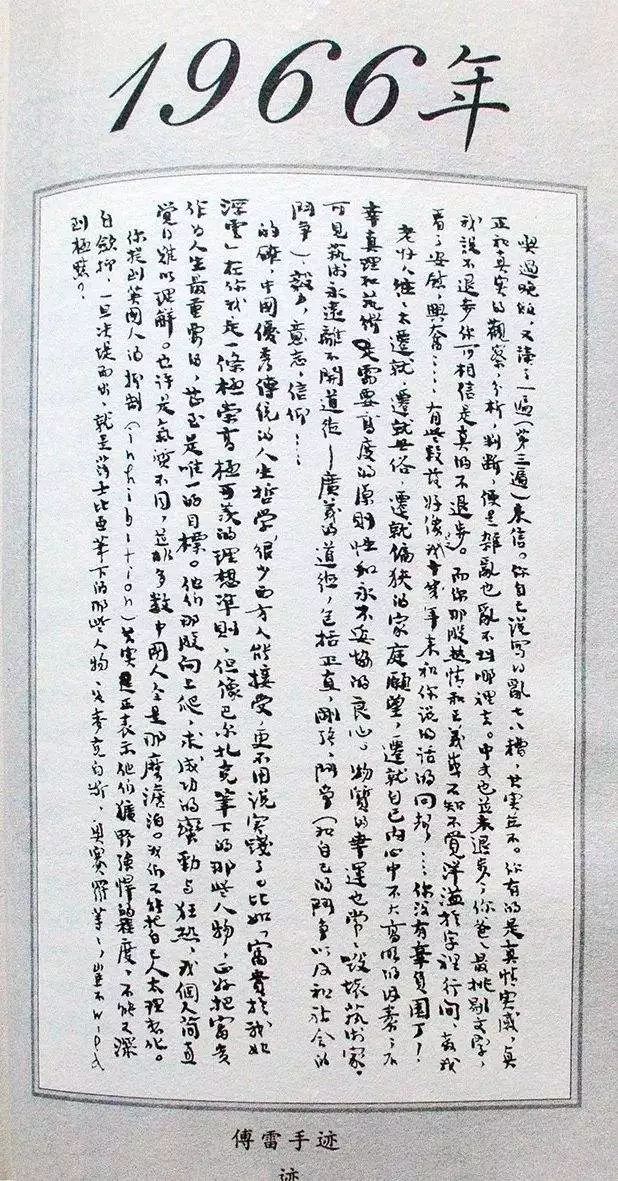 1966年
吃過晚飯,又讀了一遍(第三遍)來信。你自己說寫得亂七八糟,其實並不。你有的是真情實感,真
正和真實的觀察,分析,判斷,便是雜亂也亂不到哪裡去。中文也並未退步;你爸爸最挑剔文字,
我說不退步你可相信是真的不退步。而你那股熱情和正義感不知不覺洋溢於字裡行間,教我
看了安慰,興奮……有些段落好像是我十幾年來和你說的話的回聲……你沒有辜負園丁!
老好人往往太遷就,遷就世俗,遷就偏狹的家庭願望,遷就自己內心中不大高明的因素;不
幸真理和藝術需要高度的原則性和永不妥協的良心。物質的幸運也常常毀壞藝術家。
可見藝術永遠離不開道德——廣義的道德,包括正直,剛強,鬥爭(和自己的鬥爭以及和社會的
鬥爭),毅力,意志,信仰……
的確,中國優秀傳統的人生哲學,很少西方人能接受,更不用說實踐了。比如「富貴於我如
浮雲」在你我是一條極崇高極可羨的理想準則,但像巴尔扎克筆下的那些人物,正好把富貴
作為人生最重要的,甚至是唯一的目標。他们那股向上爬,求成功的蠻勁与狂熱,我個人簡直
覺得難以理解。也許是氣質不同,並非多數中國人全是那麼澹泊。我们不能把自己人太理想化。
你提到英國人的抑制(inhibition)其實正表示他们獷野強悍的程度,不能不深
自斂抑,一旦决堤而出,就是莎士比亞筆下的那些人物,如麥克白斯、奧賽羅等等,豈不wild
到極點?
傅雷手迹
迹